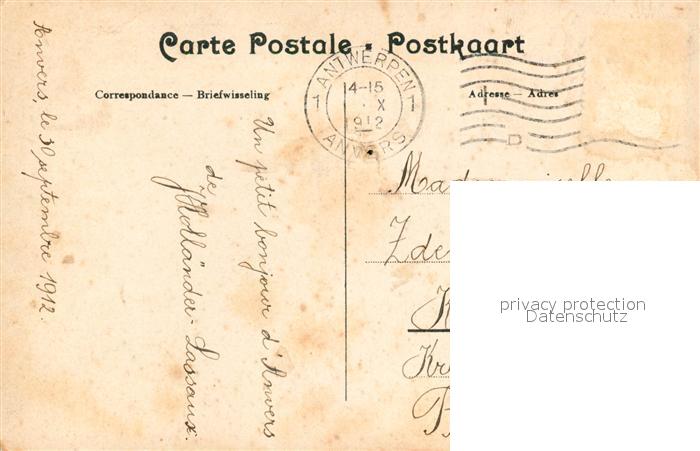 Carte Postale - Postkaart
Correspondance — Briefwisseling
Adresse — Adres
ANTWERPEN
1 14-15 1
X
1912
ANVERS
Anvers, le 30 septembre 1912.
Un petit bonjour d'Anvers
de
Holländer-Lassaux.
Mademoiselle
privacy protection
Datenschutz